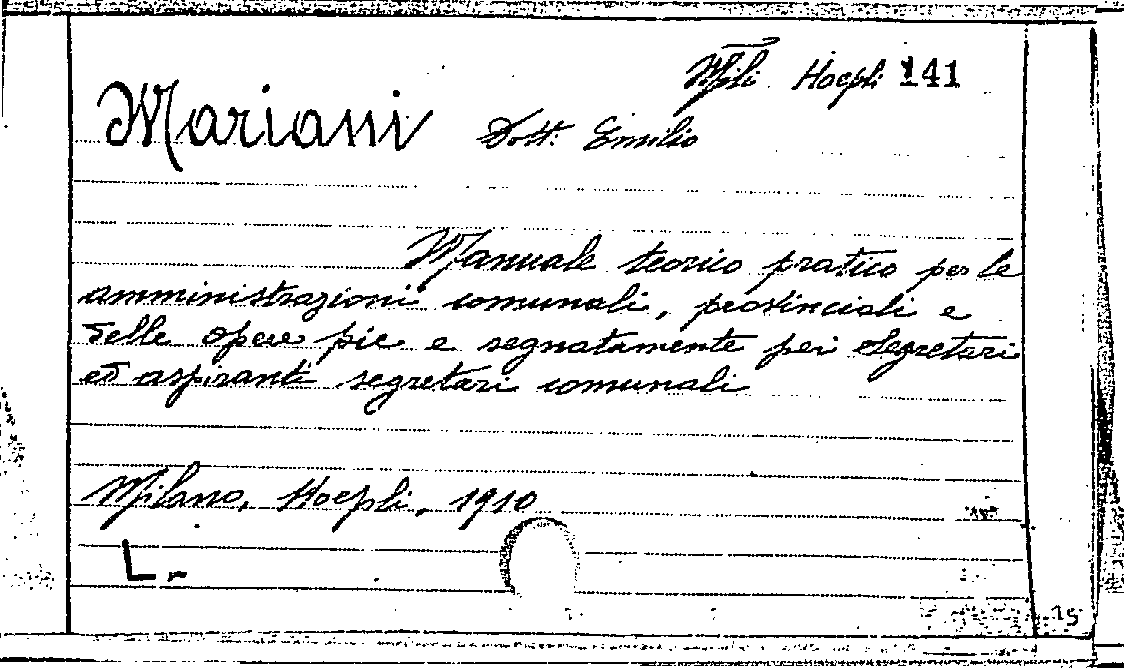 Hoepli 141
Mariani Dott. Emilio
Manuale teorico pratico per le
amministrazioni comunali, provinciali e
delle opere pie e segnatamente pei Segretari
ed aspiranti segretari comunali
Milano, Hoepli, 1910
L.-
15